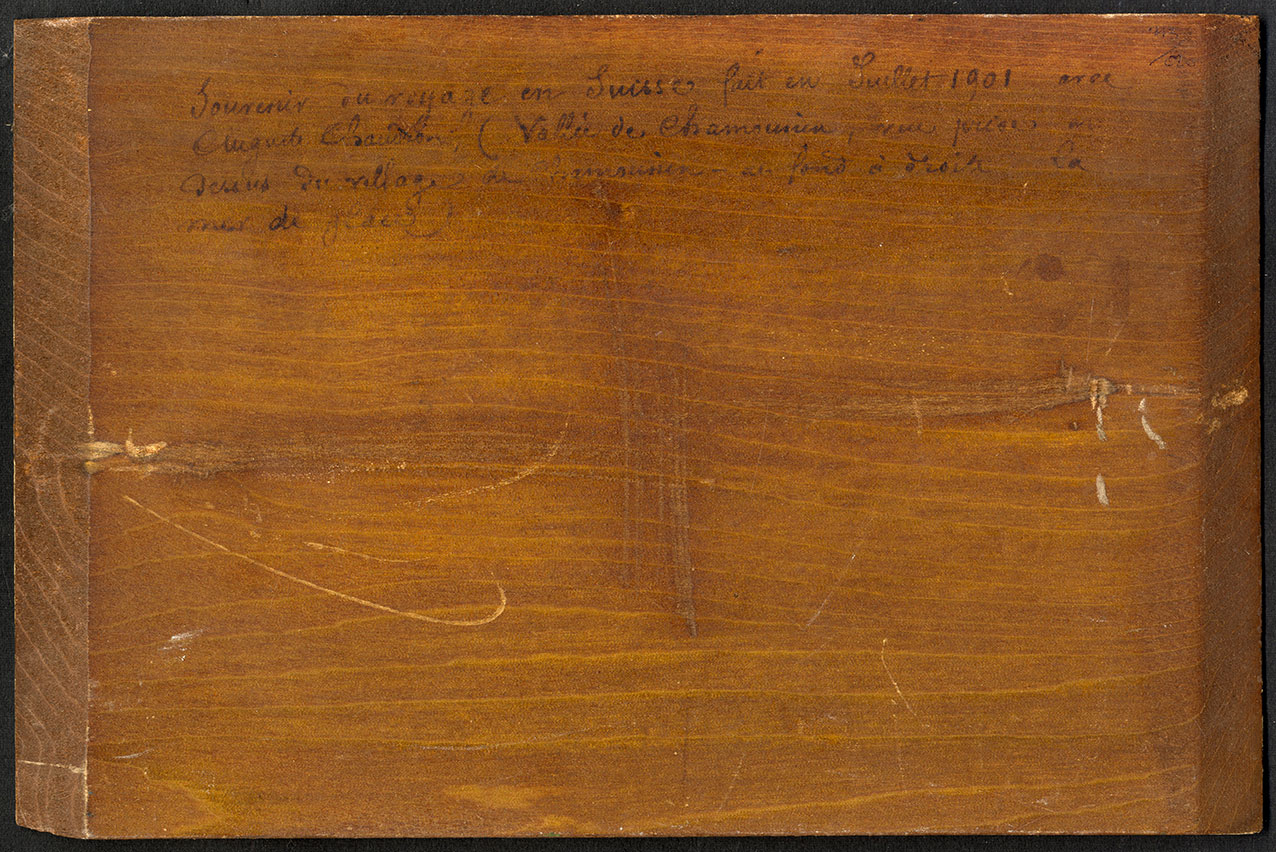 Souvenir du voyage en Suisse fait en Juillet 1901 avec
Auguste (Vallée de Chamounien, vue prise au
dessus du village de Chamounien au fond à droite La
mer de glace)